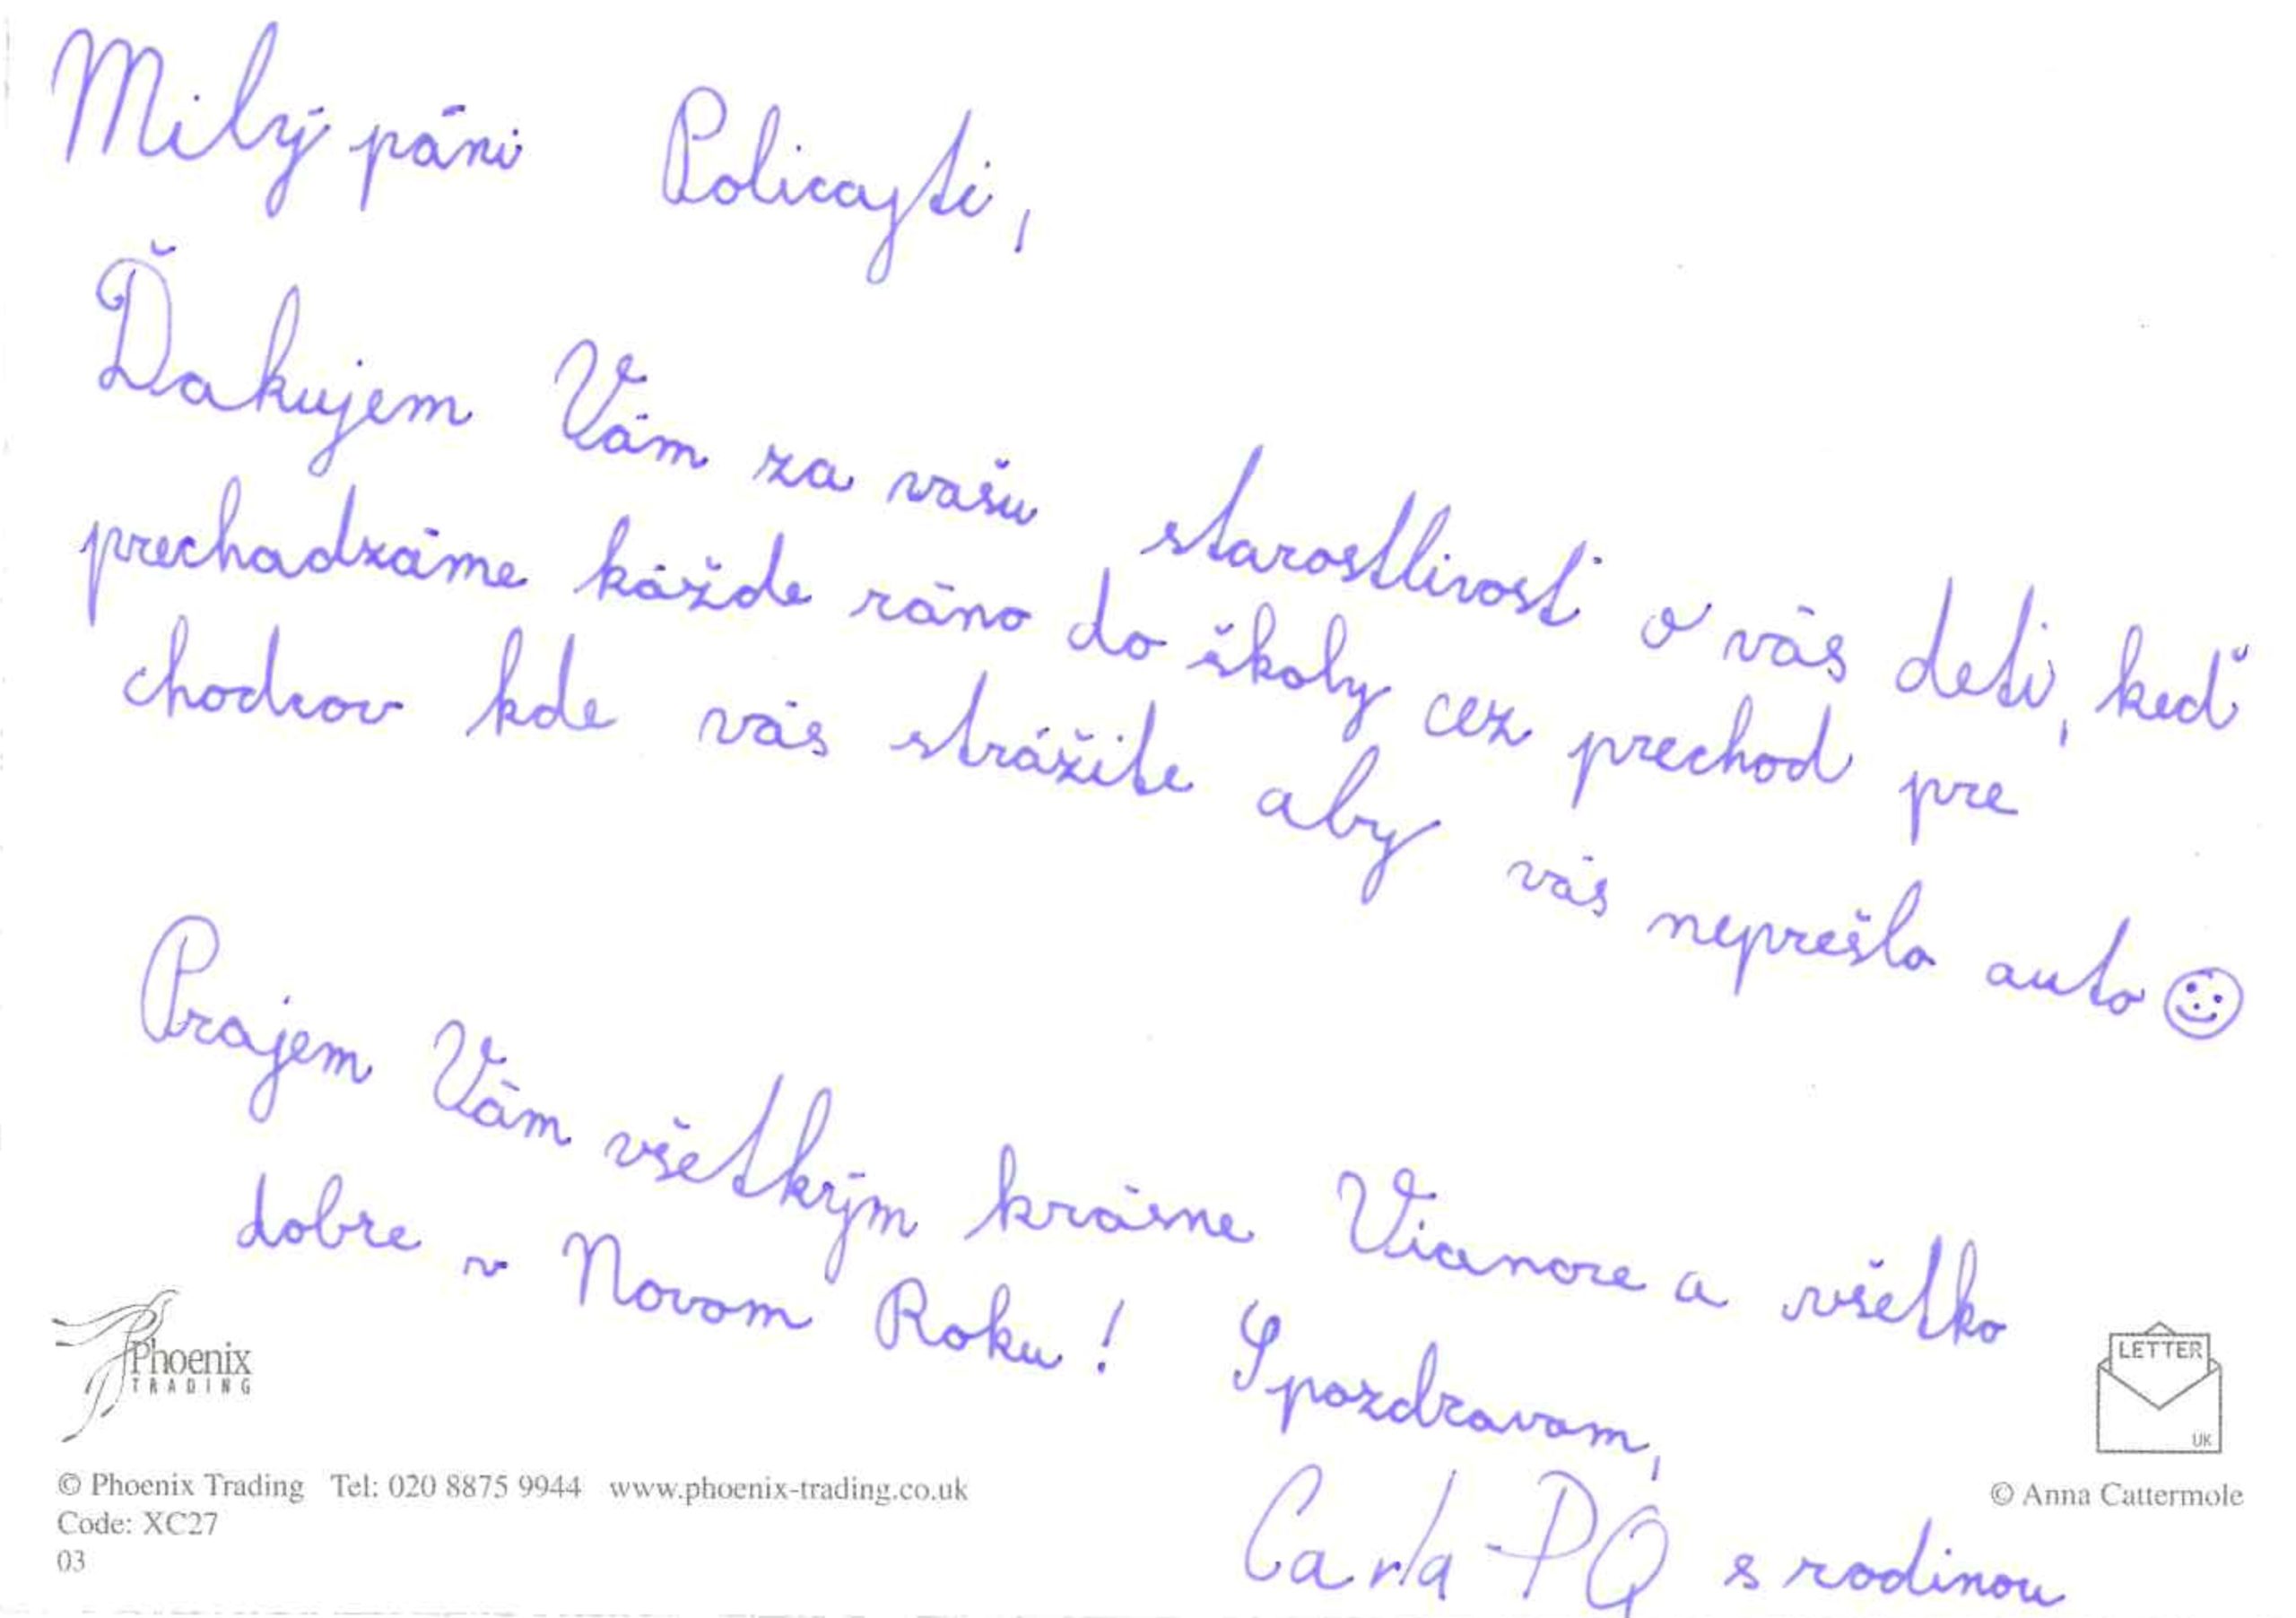 Milý páni Policajti,
Ďakujem Vám za vašu starostlivosť o vás deti, keď
prechadzáme káždé ráno do školy cez prechod pre
chodcov kde vás strážite aby vásneprešlo auto ☺
Prajem Vám všetkým krásne Vianoce a všetko
dobre v Novom Roku! S pozdravom,
Carla PQ s rodinou
Phoenix
TRADING
LETTER
UK
© Phoenix Trading Tel: 020 8875 9944 www.phoenix-trading.co.uk
© Anna Cattermole
Code: XC27
03